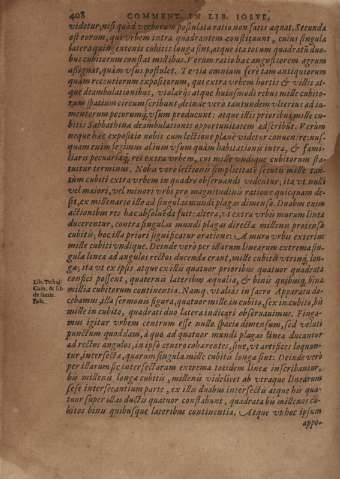 408 COMMENT. IN LIB. IOSVE,
videtur, nisi quòd verborum postulata ratio non satis aquat. Secunda
est eorum, qui vrbem intra quadratum constituunt, cuius singula
latera quingentenis cubitis longa sint, atque ita totum quadratū duo-
bus cubitorum constat millibus. Verùm ratio hac angustiorem agrum
assignat, quàm vsus postulet. Tertia omnium ferè tam antiquiorum
quàm recentiorum expositorum, qui extra vrbem hortis & villis at-
que deambulationibus, vialarijs atque huiusmodi rebus mille cubito-
rum spatium circumscribunt, deinde vero tantundem vlterius ad iu-
mentorum pecorumq; vsum producunt: atque illis prioribus mille cu-
bitis Sabbathina deambulationis opportunitatem adscribit. Verùm
neque hac expositio nobis cum lectione planè videtur conuenire: nus-
quam enim legimus alium vsum quàm habitationis intra, & fami-
liaris pecuaria, rei extra vrbem, cui mille vndique cubitorum sta-
tuitur terminus. Nobis verò lectionis simplicitate secutis mille tan-
tùm cubiti extra vrbem in quadro obseruandi videntur, ita vt nulli
vel maiori, vel minori vrbi pro magnitudinis ratione quicquam de-
sit, ex millenario illo ad singulas mundi plagas dimenso. Duabus enim
actionibus res hac absoluenda fuit: altera, vt extra vrbis murum linea
ducerentur, contra singulas mundi plagas directa millenis protensa
cubitis, hoc illa priori significatur oratione: A muris vrbis exterius
mille cubiti vndique. Deinde verò per istarum linearum extrema sin-
gula linea ad angulos rectos ducenda erant, mille cubitis vtrinq; lon-
ga, ita vt ex ipsis atque ex illis quatuor prioribus quatuor quadrata
confici possent, quaternis lateribus aqualia, & binis quibusq; bina
millia cubitorum continentia. Namq; vialas in sacro Apparatu do-
cebamus, illa sermonis figura, quatuor mille in cubito, sex in cubito, bis
mille in cubito, quadrati duo latera indicari obseruauimus. Finga-
mus igitur vrbem centrum esse nulla spatia dimensum, sed veluti
punctum quoddam, à quo ad quatuor mundi plagas linea ducantur
ad rectos angulos, in ipso cetro cohaerentes, siue, vt artifices loquun-
tur, intersecta, quarum singula mille cubitis longa sint: Deinde verò
per illarum sic intersectarum extrema totidem linea inscribantur,
bis millenis longa cubitis, millenis videlicet ab vtraque linearum
sese intersecantium parte, ex illis duabus intersectis atque his qua-
tuor super illas ductis quatuor constabunt, quadrata bis millenos cu-
bitos binis quibusque lateribus continentia. Atque vt hoc ipsum
appo-